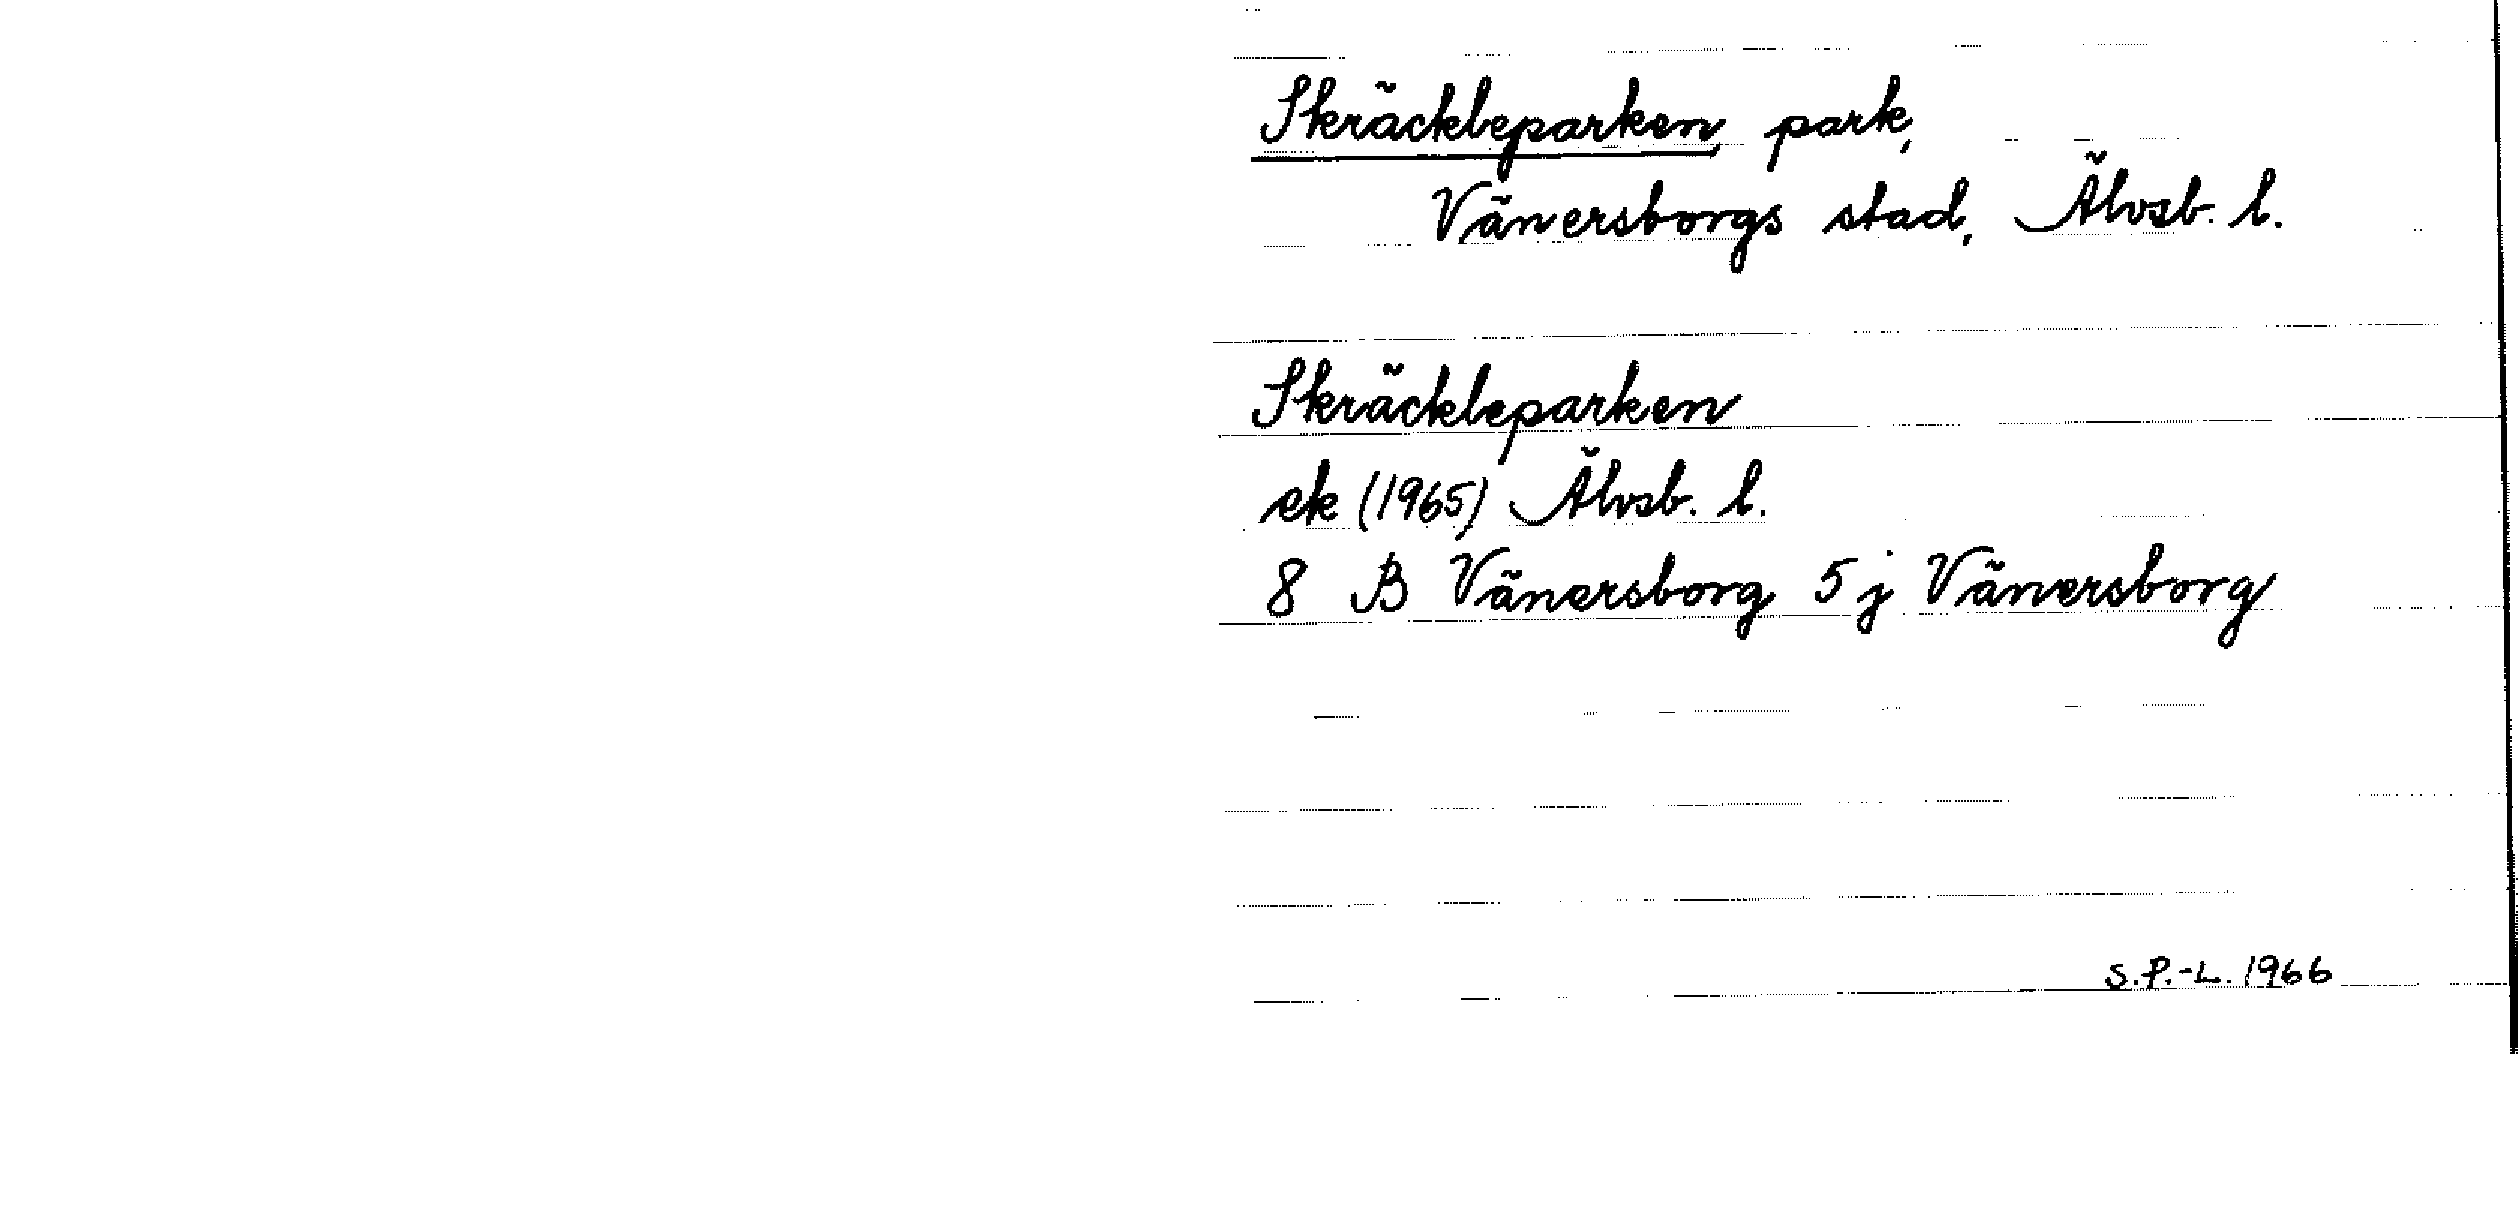 Skräckleparken, park,
Vänersborgs stad, Älvsb. l.
Skräckleparken
ek (1965) Älvsb. l.
8 B Vänersborg 5j Vänersborg
S.P.-L. 1966